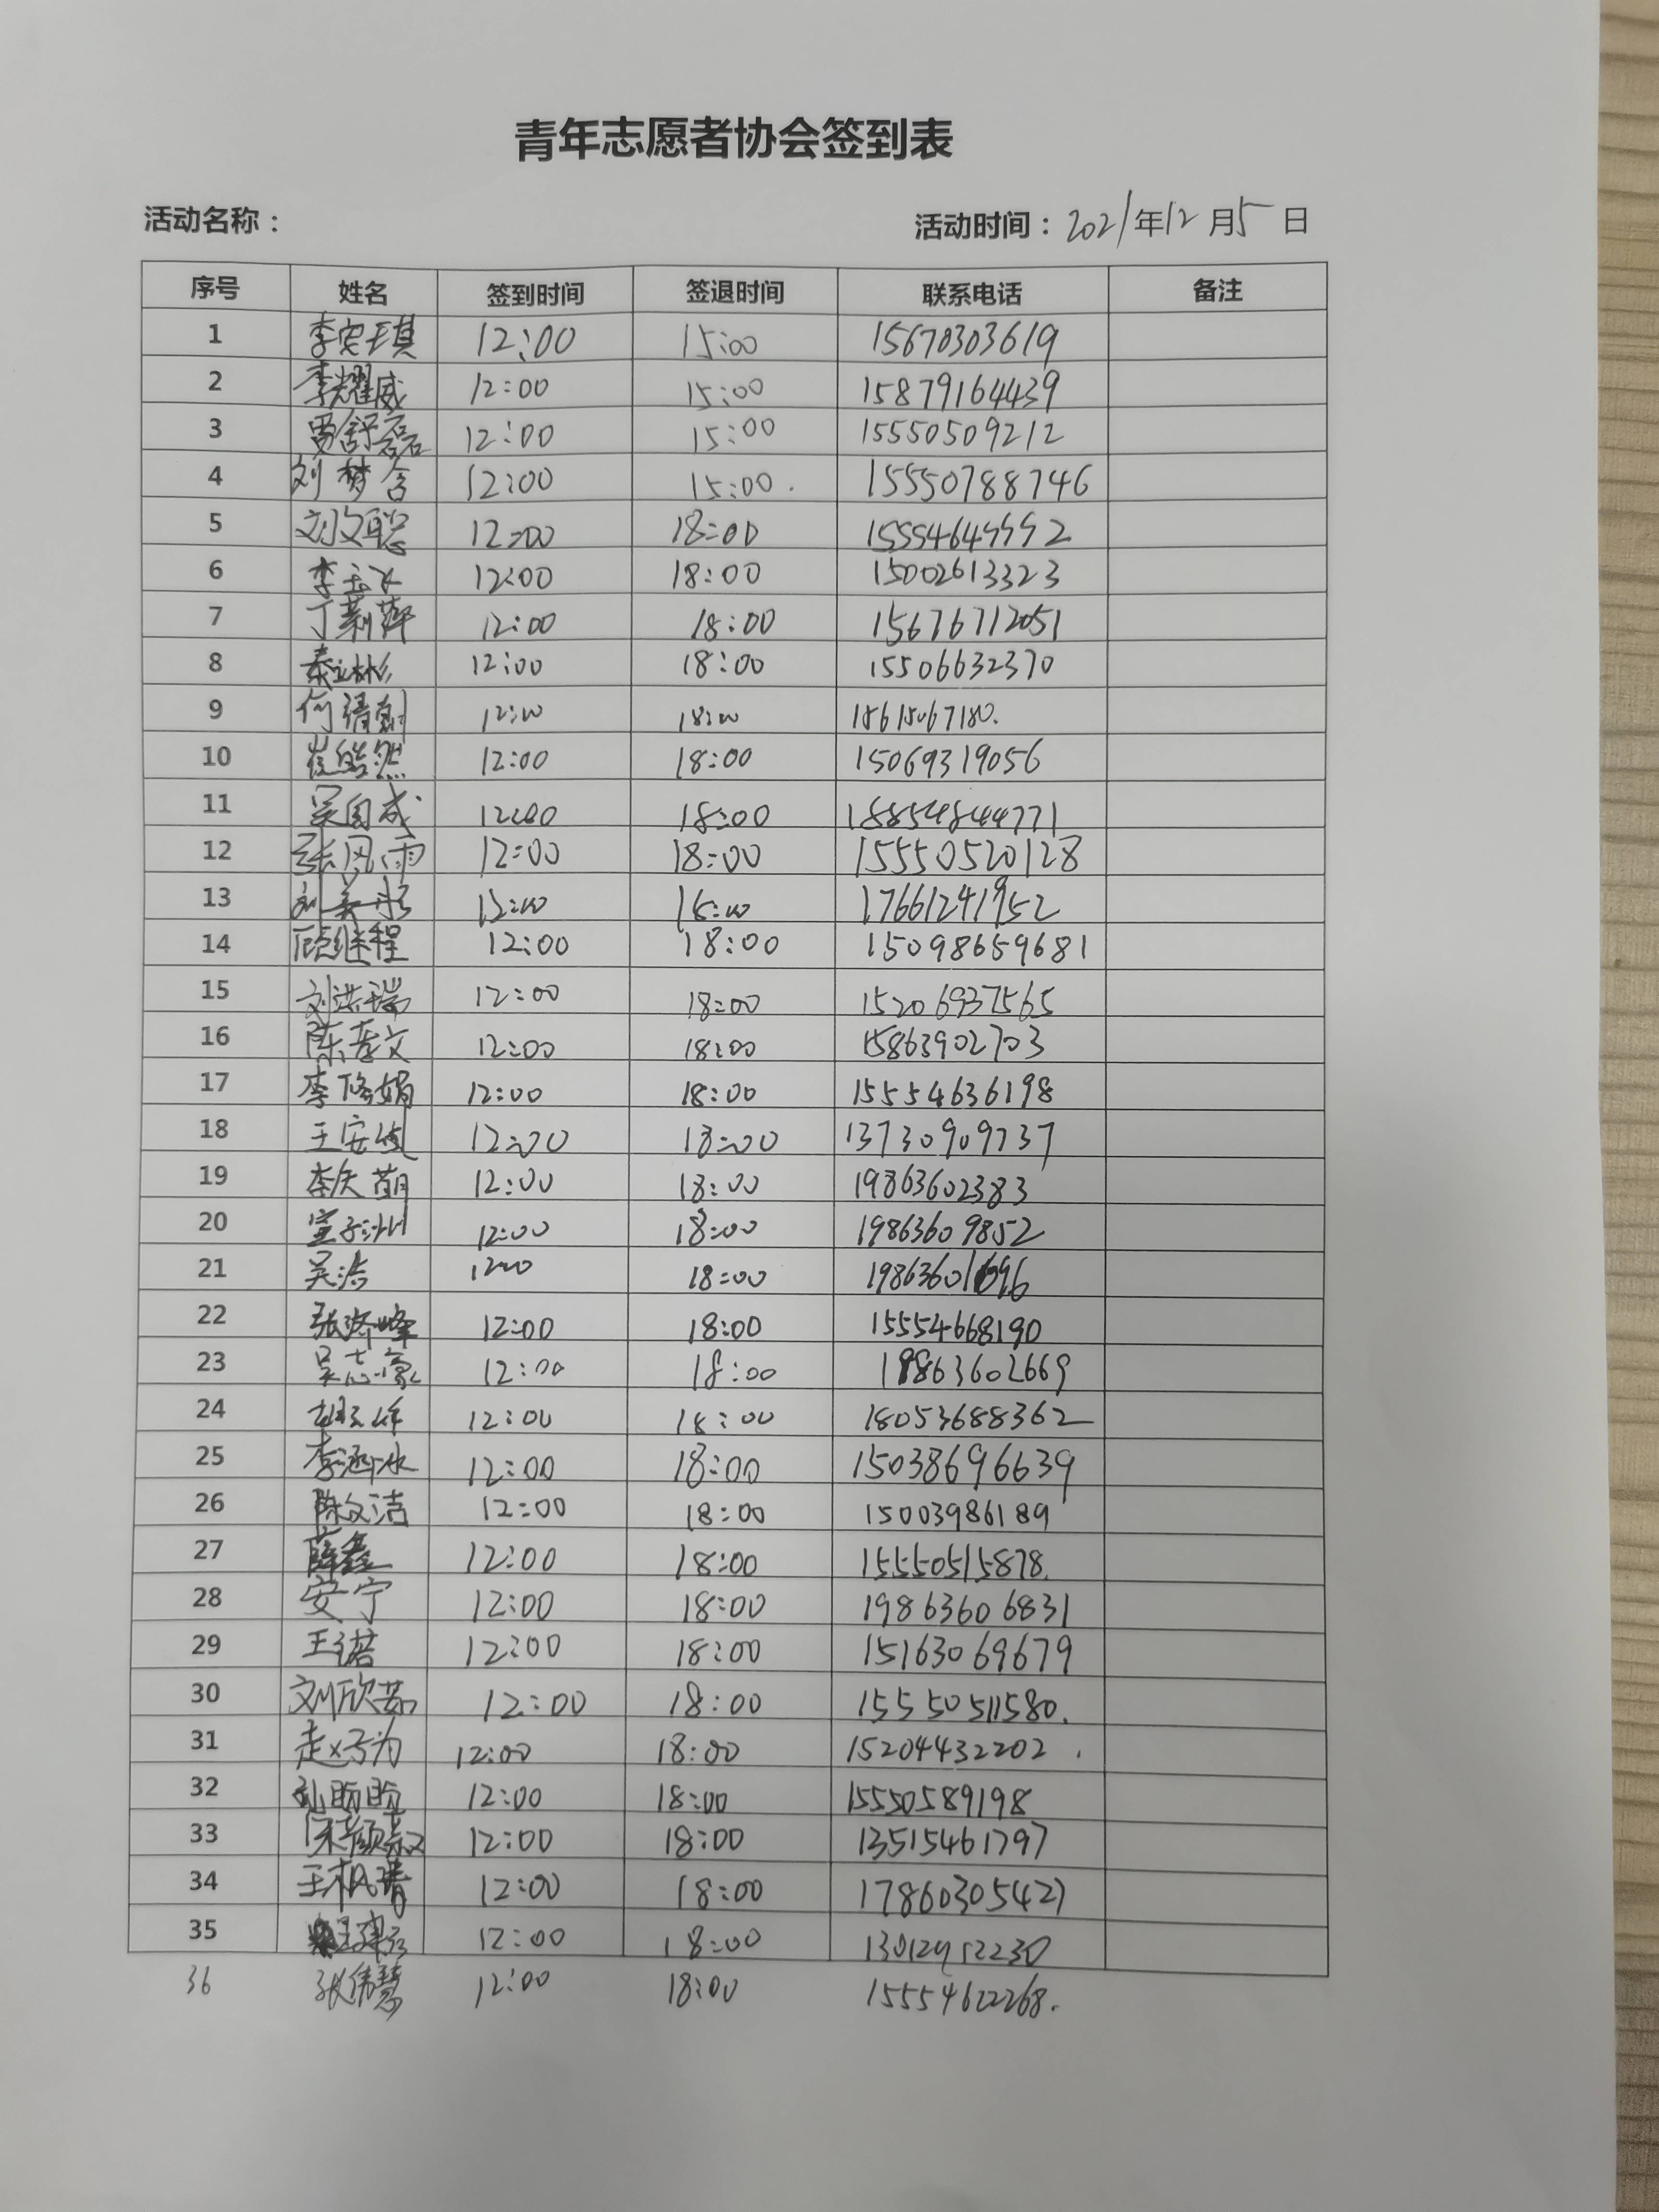 青年志愿者协会签到表
活动名称： 活动时间：2021年12月5日
序号 姓名 签到时间 签退时间 联系电话 备注
1 李安琪 12:00 15:00 15670303619
2 李耀威 12:00 15:00 15879164439
3 贾舒磊 12:00 15:00 15550509212
4 刘梦含 12:00 15:00 15550788746
5 刘文聪 12:00 18:00
6 12:00 18:00 15002613323
7 丁莉萍 12:00 18:00 15676712051
8 12:00 18:00 15506632370
9 12:00 18:00
10 崔皓然 12:00 18:00 15069319056
11 吴自成 12:00 18:00 18854844771
12 张风雨 12:00 18:00 15550520128
13 17661241952
14 顾继程 12:00 18:00 15098659681
15 刘洪瑞 12:00 18:00 15206937565
16 陈彦文 12:00 18:00 15863902703
17 李修娟 12:00 18:00 15554636198
18 12:00 18:00 13730909737
19 李庆萌 12:00 18:00 19863602383
20 12:00 18:00 19863609852
21 吴浩 1200 18:00
22 张洛峰 12:00 18:00 15554668190
23 吴志豪 12:00 18:00 19863602669
24 12:00 18:00 18053688362
25 李涵冰 12:00 18:00 15038696639
26 陈文洁 12:00 18:00 15003986189
27 薛鑫 12:00 18:00 15550515878.
28 安宁 12:00 18:00 19863606831
29 王诺 12:00 18:00 15163069679
30 刘欣茹 12:00 18:00 15550511580.
31 赵子为 12:00 18:00 15204432202
32 孔盼盼 12:00 18:00 15550589198
33 12:00 18:00 13515461797
34 12:00 18:00 17860305427
35 12:00 18:00
36 张伟慧 12:00 18:00 15554622268.